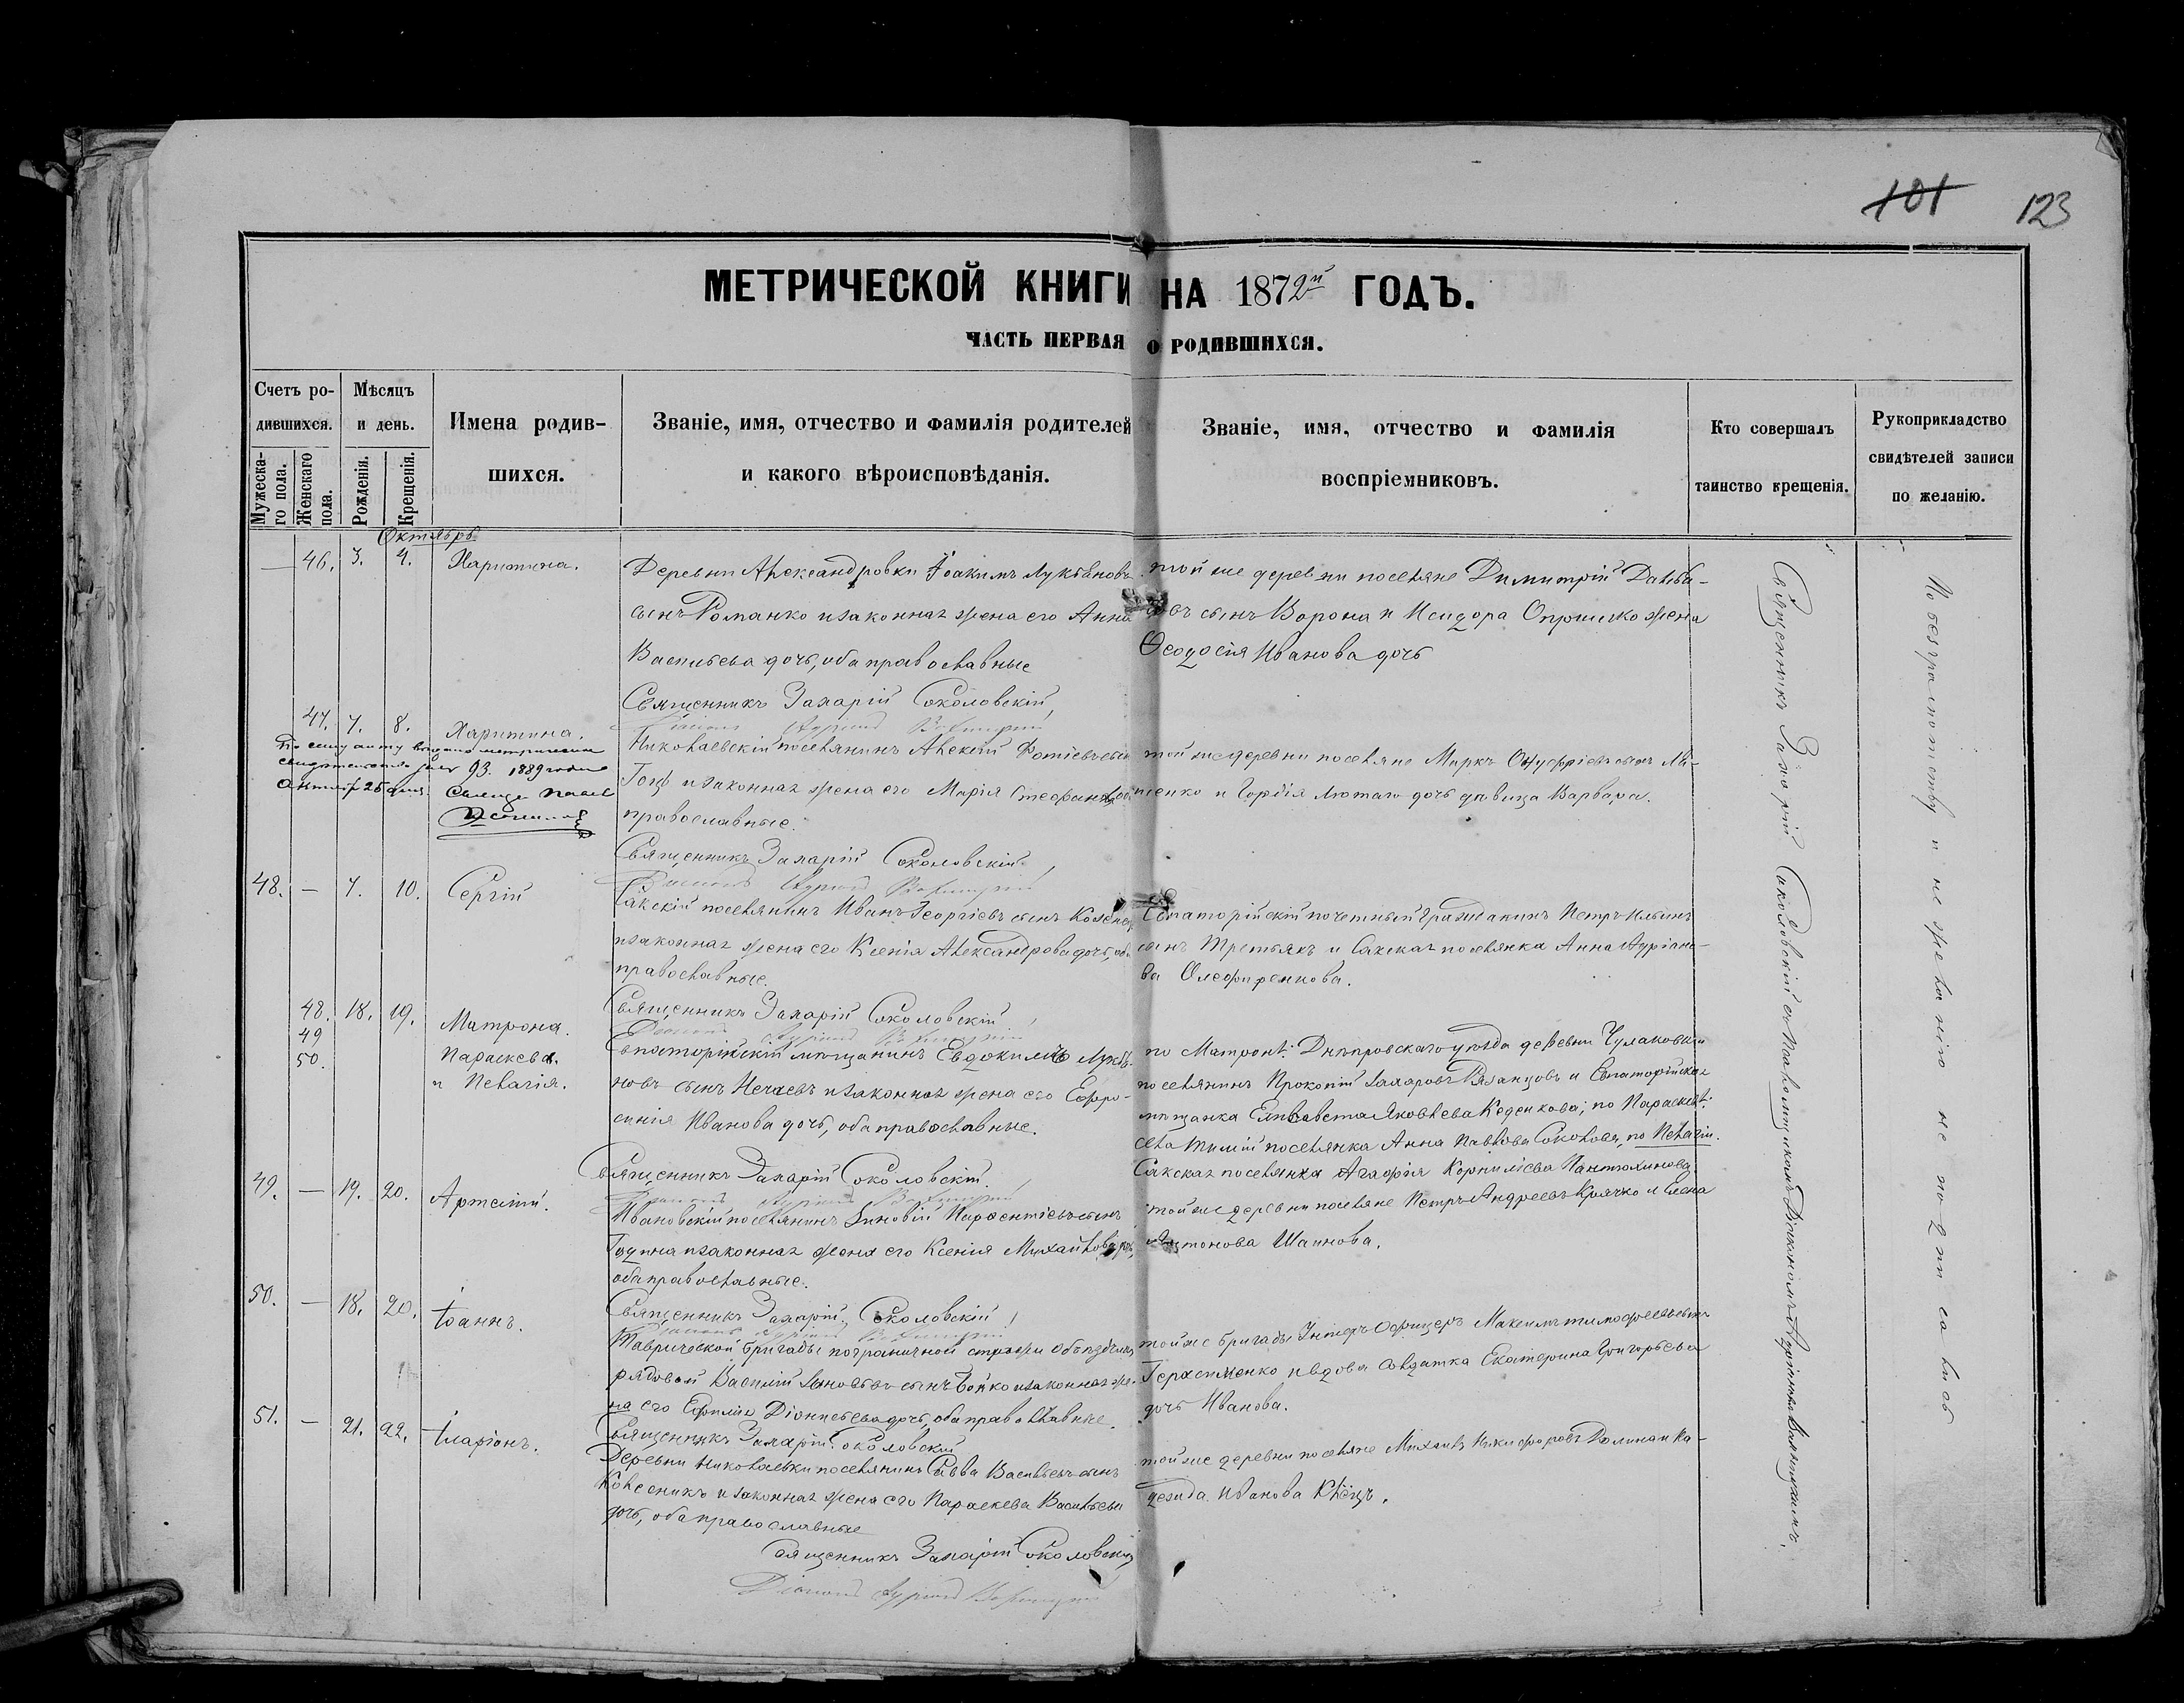 101
123
МЕТРИЧЕСКОЙ КНИГИ НА 1872й ГОДЪ.
ЧАСТЬ ПЕРВАЯ О РОДИВШИХСЯ.
Счетъ ро-
дившихся.
Мужеска-
го пола.
Женскаго
пола.
Мѣсяцъ
и день.
Рожденія.
Крещенія.
Имена родив-
шихся.
Званіе, имя, отчество и фамилія родителей
и какого вѣроисповѣданія.
Званіе, имя, отчество и фамилія
воспріемниковъ.
Кто совершалъ
таинство крещенія.
Рукоприкладство
свидѣтелей записи
по желанію.
Октябрь
— 46. 3. 4. Харитина.
Деревни Александровки Іоакимъ Лукіановъ
сынъ Романко и законная жена его Анна
Васильева дочь, оба православные
Священникъ Захарій Соколовскій,
той же деревни поселяне Димитрій
сынъ Ворона и Исидора Опришко жена
Ѳеодосія Иванова дочь
47. 7. 8. Харитина.
93. 1889 года
Николаевскій поселянинъ Алексій Фотіевъ сынъ
и законная жена его Марія
православные.
Священникъ Захарій Соколовскій
той же деревни поселяне Маркъ Онуфріевъ сынъ Ля-
шенко и Гордія Лютаго дочь дѣвица Варвара.
48. — 7. 10. Сергій
Сакскій поселянинъ Иванъ Георгіевъ сынъ
и законная жена его Ксенія Александрова дочь, оба
православные.
Священникъ Захарій Соколовскій
Евпаторійскій почетный гражданинъ Петръ Ильинъ
сынъ Третьякъ и Сакская поселянка Анна Адріано-
ва Олефиренкова.
48. 18. 19. Матрона.
49 Параскева.
50. и Пелагія.
Евпаторійскій мѣщанинъ Евдокимъ Лукья-
новъ сынъ Нечаевъ и законная жена его Ефро-
синія Иванова дочь, оба православные.
Священникъ Захарій Соколовскій.
по Матронѣ: Днѣпровскаго уѣзда деревни Чулаковки
поселянинъ Прокопій Захаровъ Рязанцовъ и Евпаторійская
мѣщанка Елисавета Яковлева Кеденкова; по Параскевѣ:
села поселянка Анна Павлова Соколова, по Пелагіи.
Сакская поселянка Агафія Корниліева Пантюхинова.
49. — 19. 20. Артемій.
Ивановскій поселянинъ Зиновій Парфентіевъ сынъ
Година и законная жена его Ксенія Михайлова дочь,
оба православные.
Священникъ Захарій Соколовскій
той же деревни поселяне Петръ Андреевъ Крячко и Елена
Антонова Шаинова.
50. — 18. 20. Іоаннъ.
Таврической бригады пограничной стражи объѣздчикъ
рядовой Василій сынъ Бойко и законная же-
на его Діонисьева дочь, оба православные.
Священникъ Захарій Соколовскій
той же бригады Унтеръ Офицеръ Максимъ Тимофеевъ сынъ
Герасименко, и вдова Солдатка Екатерина Григорьева
дочь Иванова.
51. — 21. 22. Іларіонъ.
Деревни Николаевки поселянинъ Савва Васильевъ сынъ
Колесникъ и законная жена его Параскева Васильева
дочь, оба православные
Священникъ Захарій Соколовскій
Діаконъ
той же деревни поселяне Михаилъ Никифоровъ Долинаи На-
дежда Иванова
Священникъ Захарій Соколовскій съ Псаломщикомъ Діакономъ
По безграмотству и не желанію не подписались